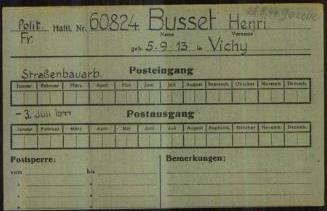 Polit. Häftl. Nr. 60824 Busset Henri
Fr. Name Vorname
geb. 5.9.13 in Vichy
Straßenbauarb.
Posteingang
Januar Februar März April Mai Juni Juli August Septemb. Oktober Novemb. Dezemb.
Postausgang
-3. Juli 1944
Januar Februar März April Mai Juni Juli August Septemb. Oktober Novemb. Dezemb.
Postsperre: Bemerkungen:
vom bis
" "
" "